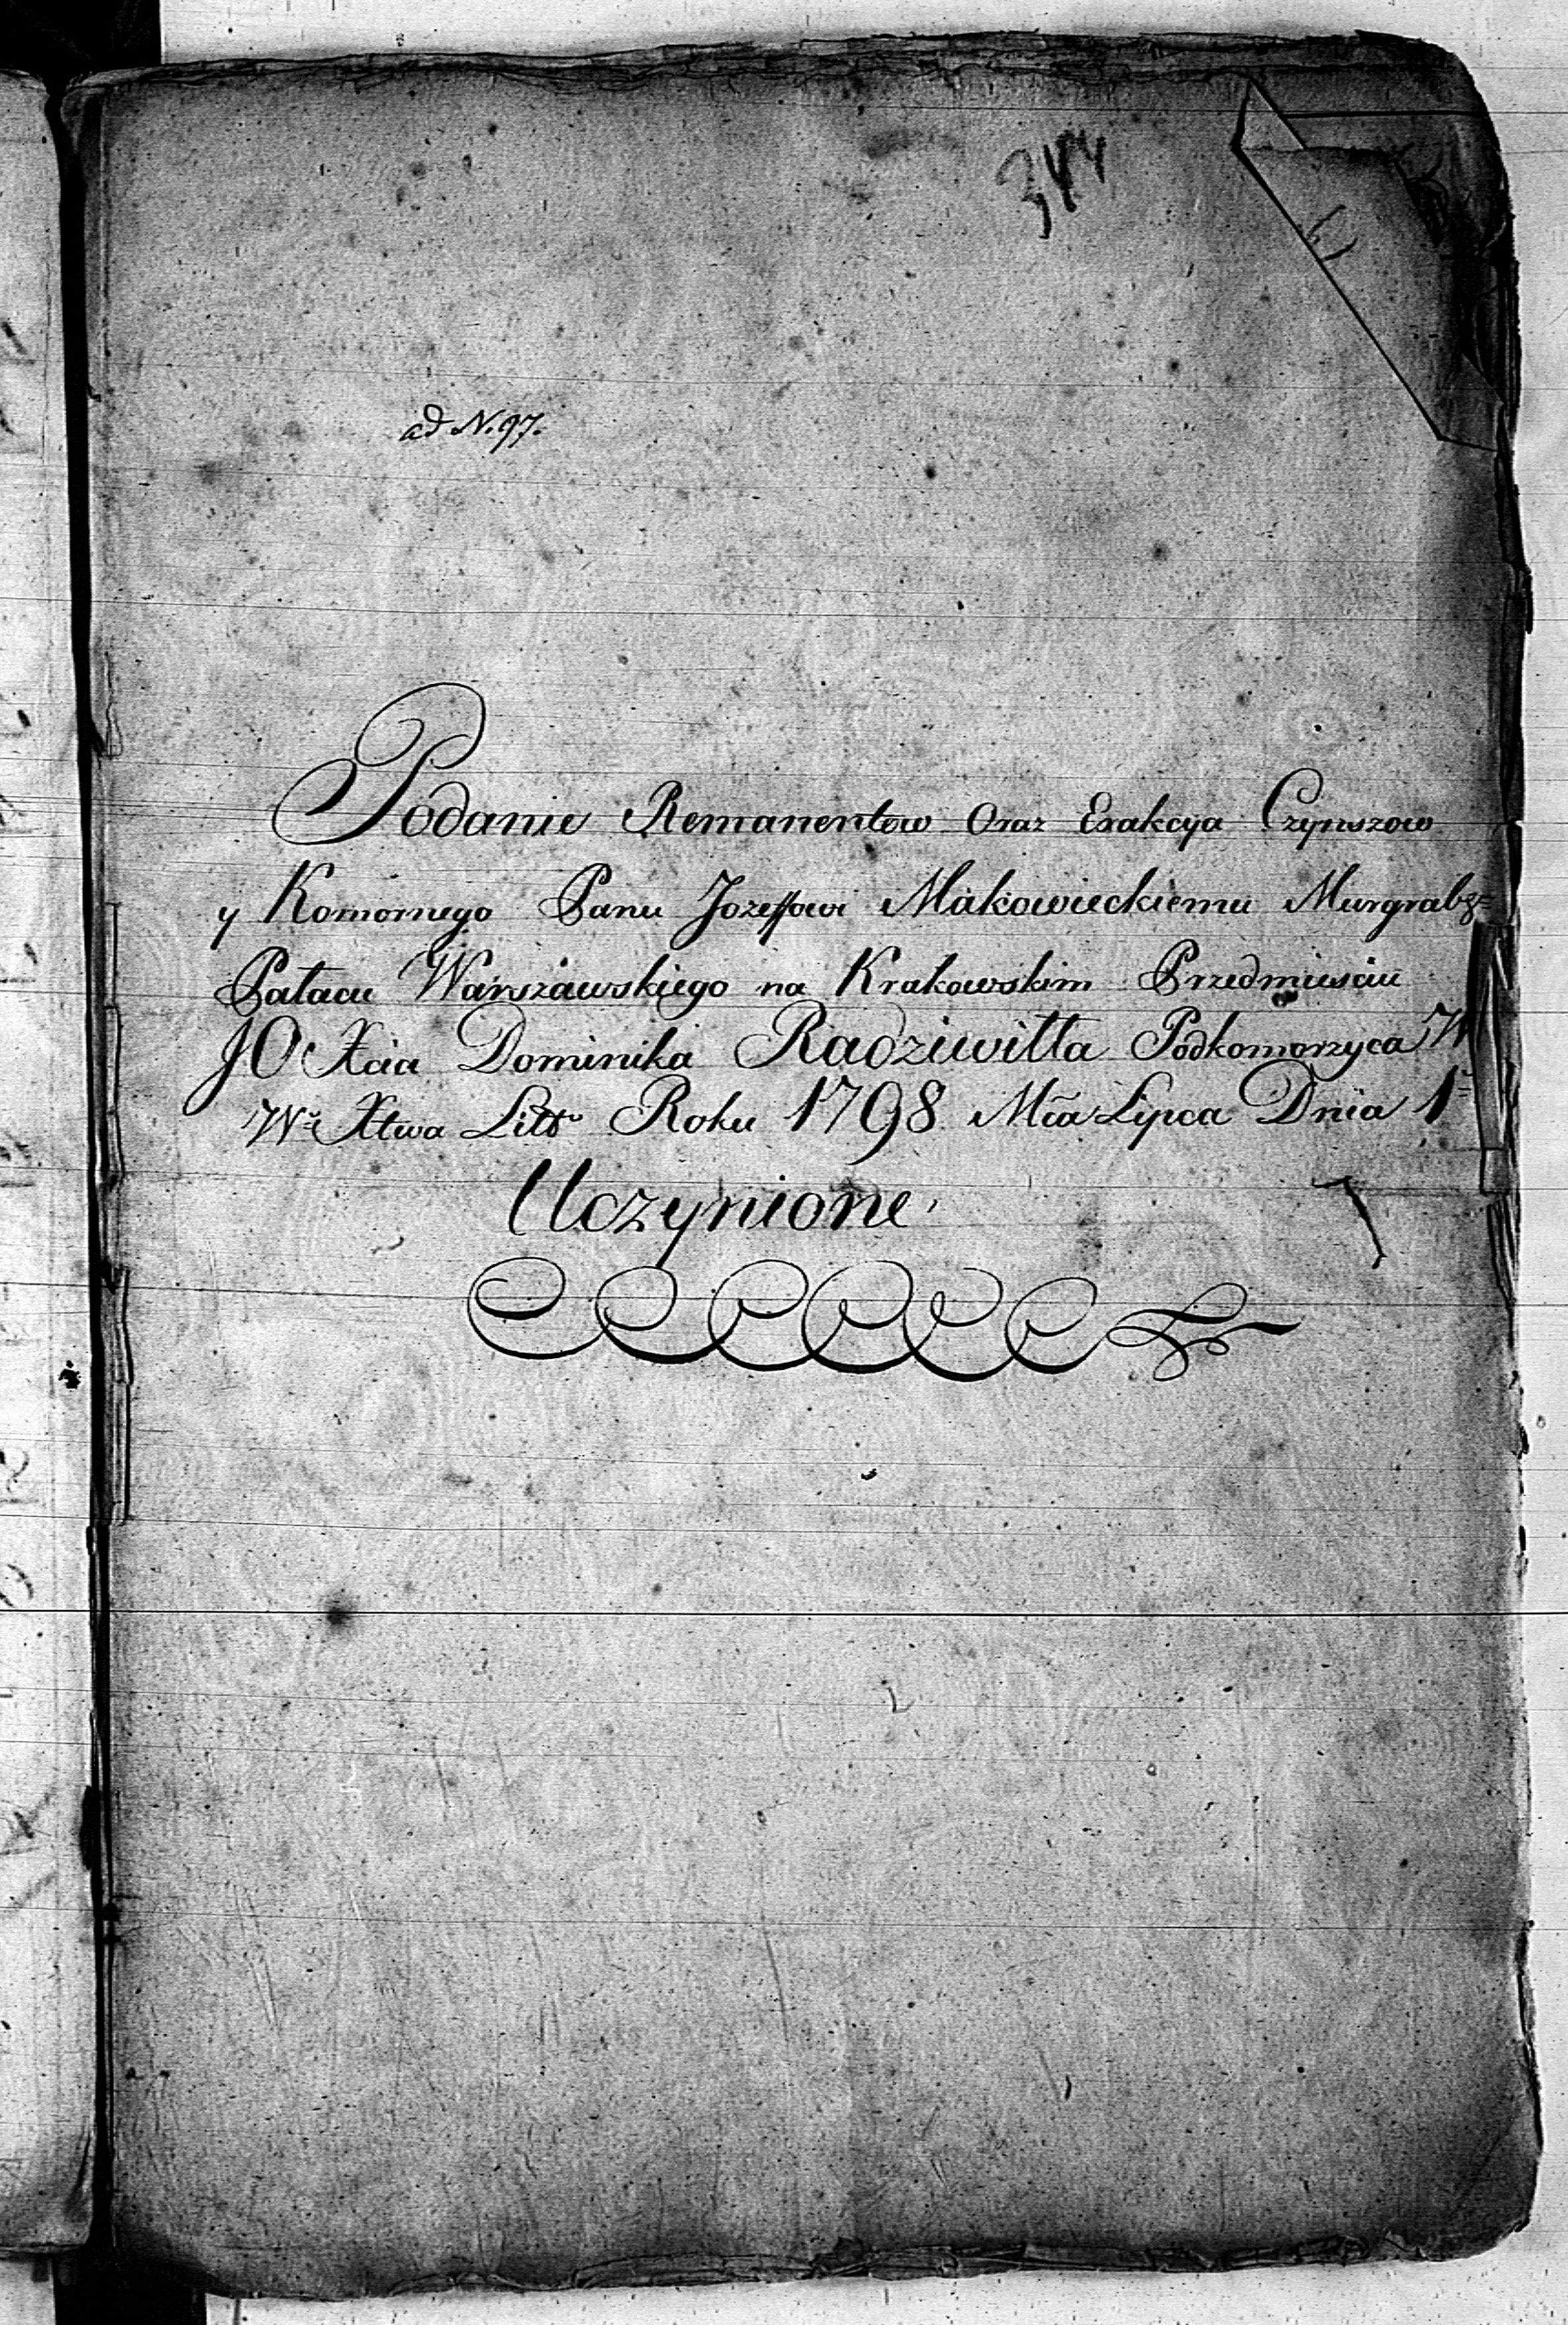 344
ad N. 97.
Podanie Remanentow Oraz Exakcya Czynszow
y Komornego Panu Jozeffowi Makowieckiemu Murgrab:
Pałacu Warszawskiego na Krakowskim Przedmiesciu
JO Xcia Dominika Radziwiłła Podkomorzyca W
Wo Xtwa Litt Roku 1798 Mca Lipca Dnia 1
Uczynione